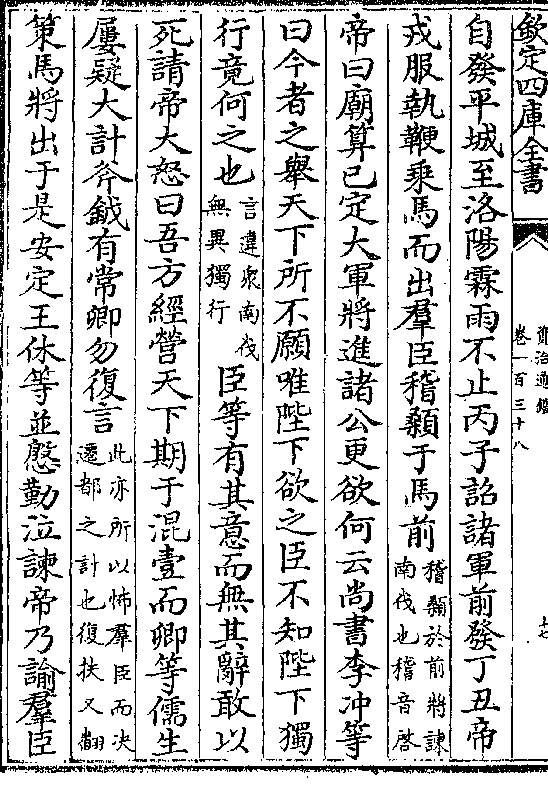 欽定四庫全書
資治通鑑
卷一百三十八
十七
自發平城至洛陽霖雨不止丙子詔諸軍前發丁丑帝
戎服執鞭乗馬而出羣臣稽顙于馬前稽顙於前將諫南伐也稽音啓
帝曰廟算已定大軍將進諸公更欲何云尚書李冲等
曰今者之舉天下所不願唯陛下欲之臣不知陛下獨
行竟何之也言違衆南伐無異獨行臣等有其意而無其辭敢以
死請帝大怒曰吾方經營天下期于混壹而卿等儒生
屢疑大計斧鉞有常卿勿復言此亦所以怖羣臣而决遷都之計也復扶又翻
策馬將出于是安定王休等並慇勤泣諫帝乃諭羣臣